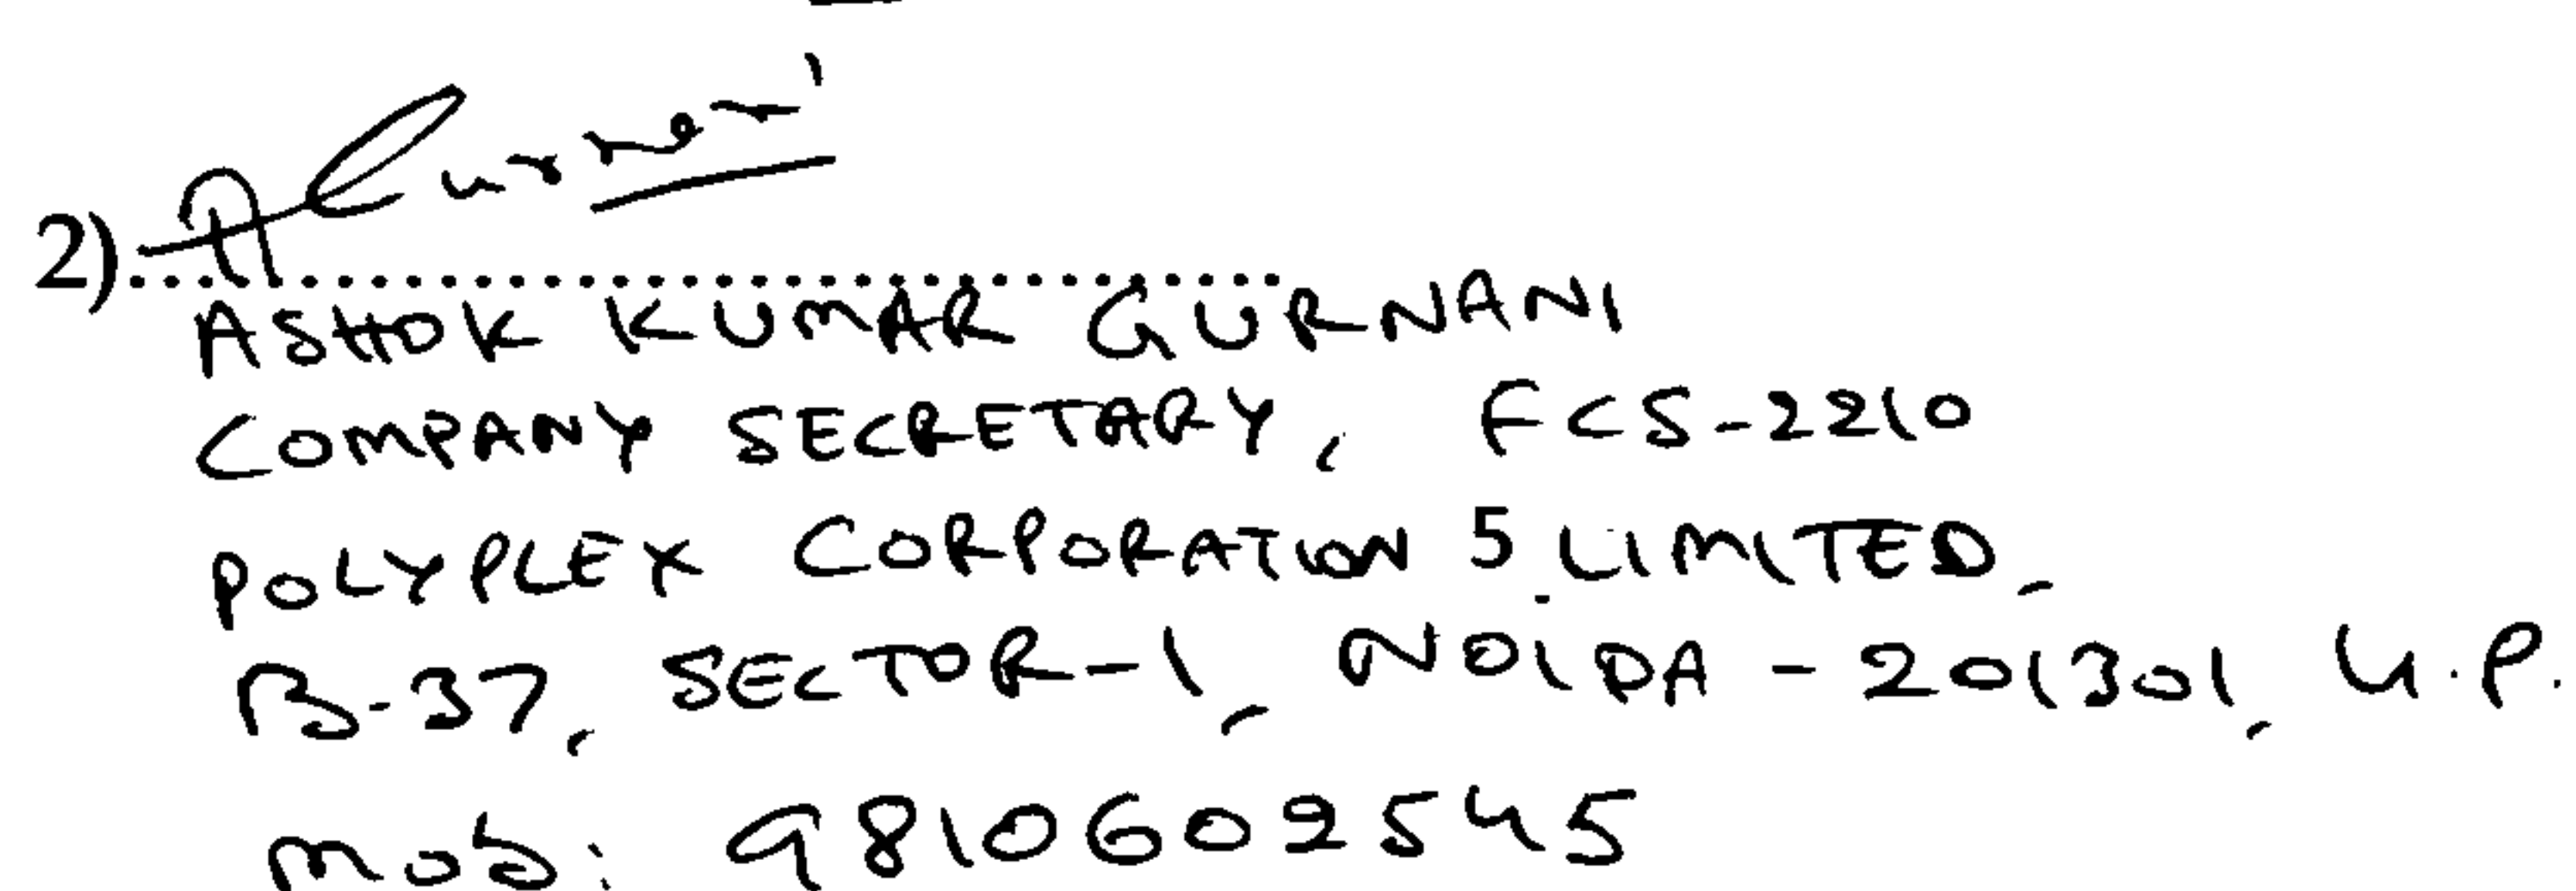 2)....................................
ASHOK KUMAR GURNANI
COMPANY SECRETARY, FCS-2210
POLYPLEX CORPORATION 5 LIMITED,
B-37, SECTOR-1, NOIDA - 201301, U.P.
Mob: 9810602545